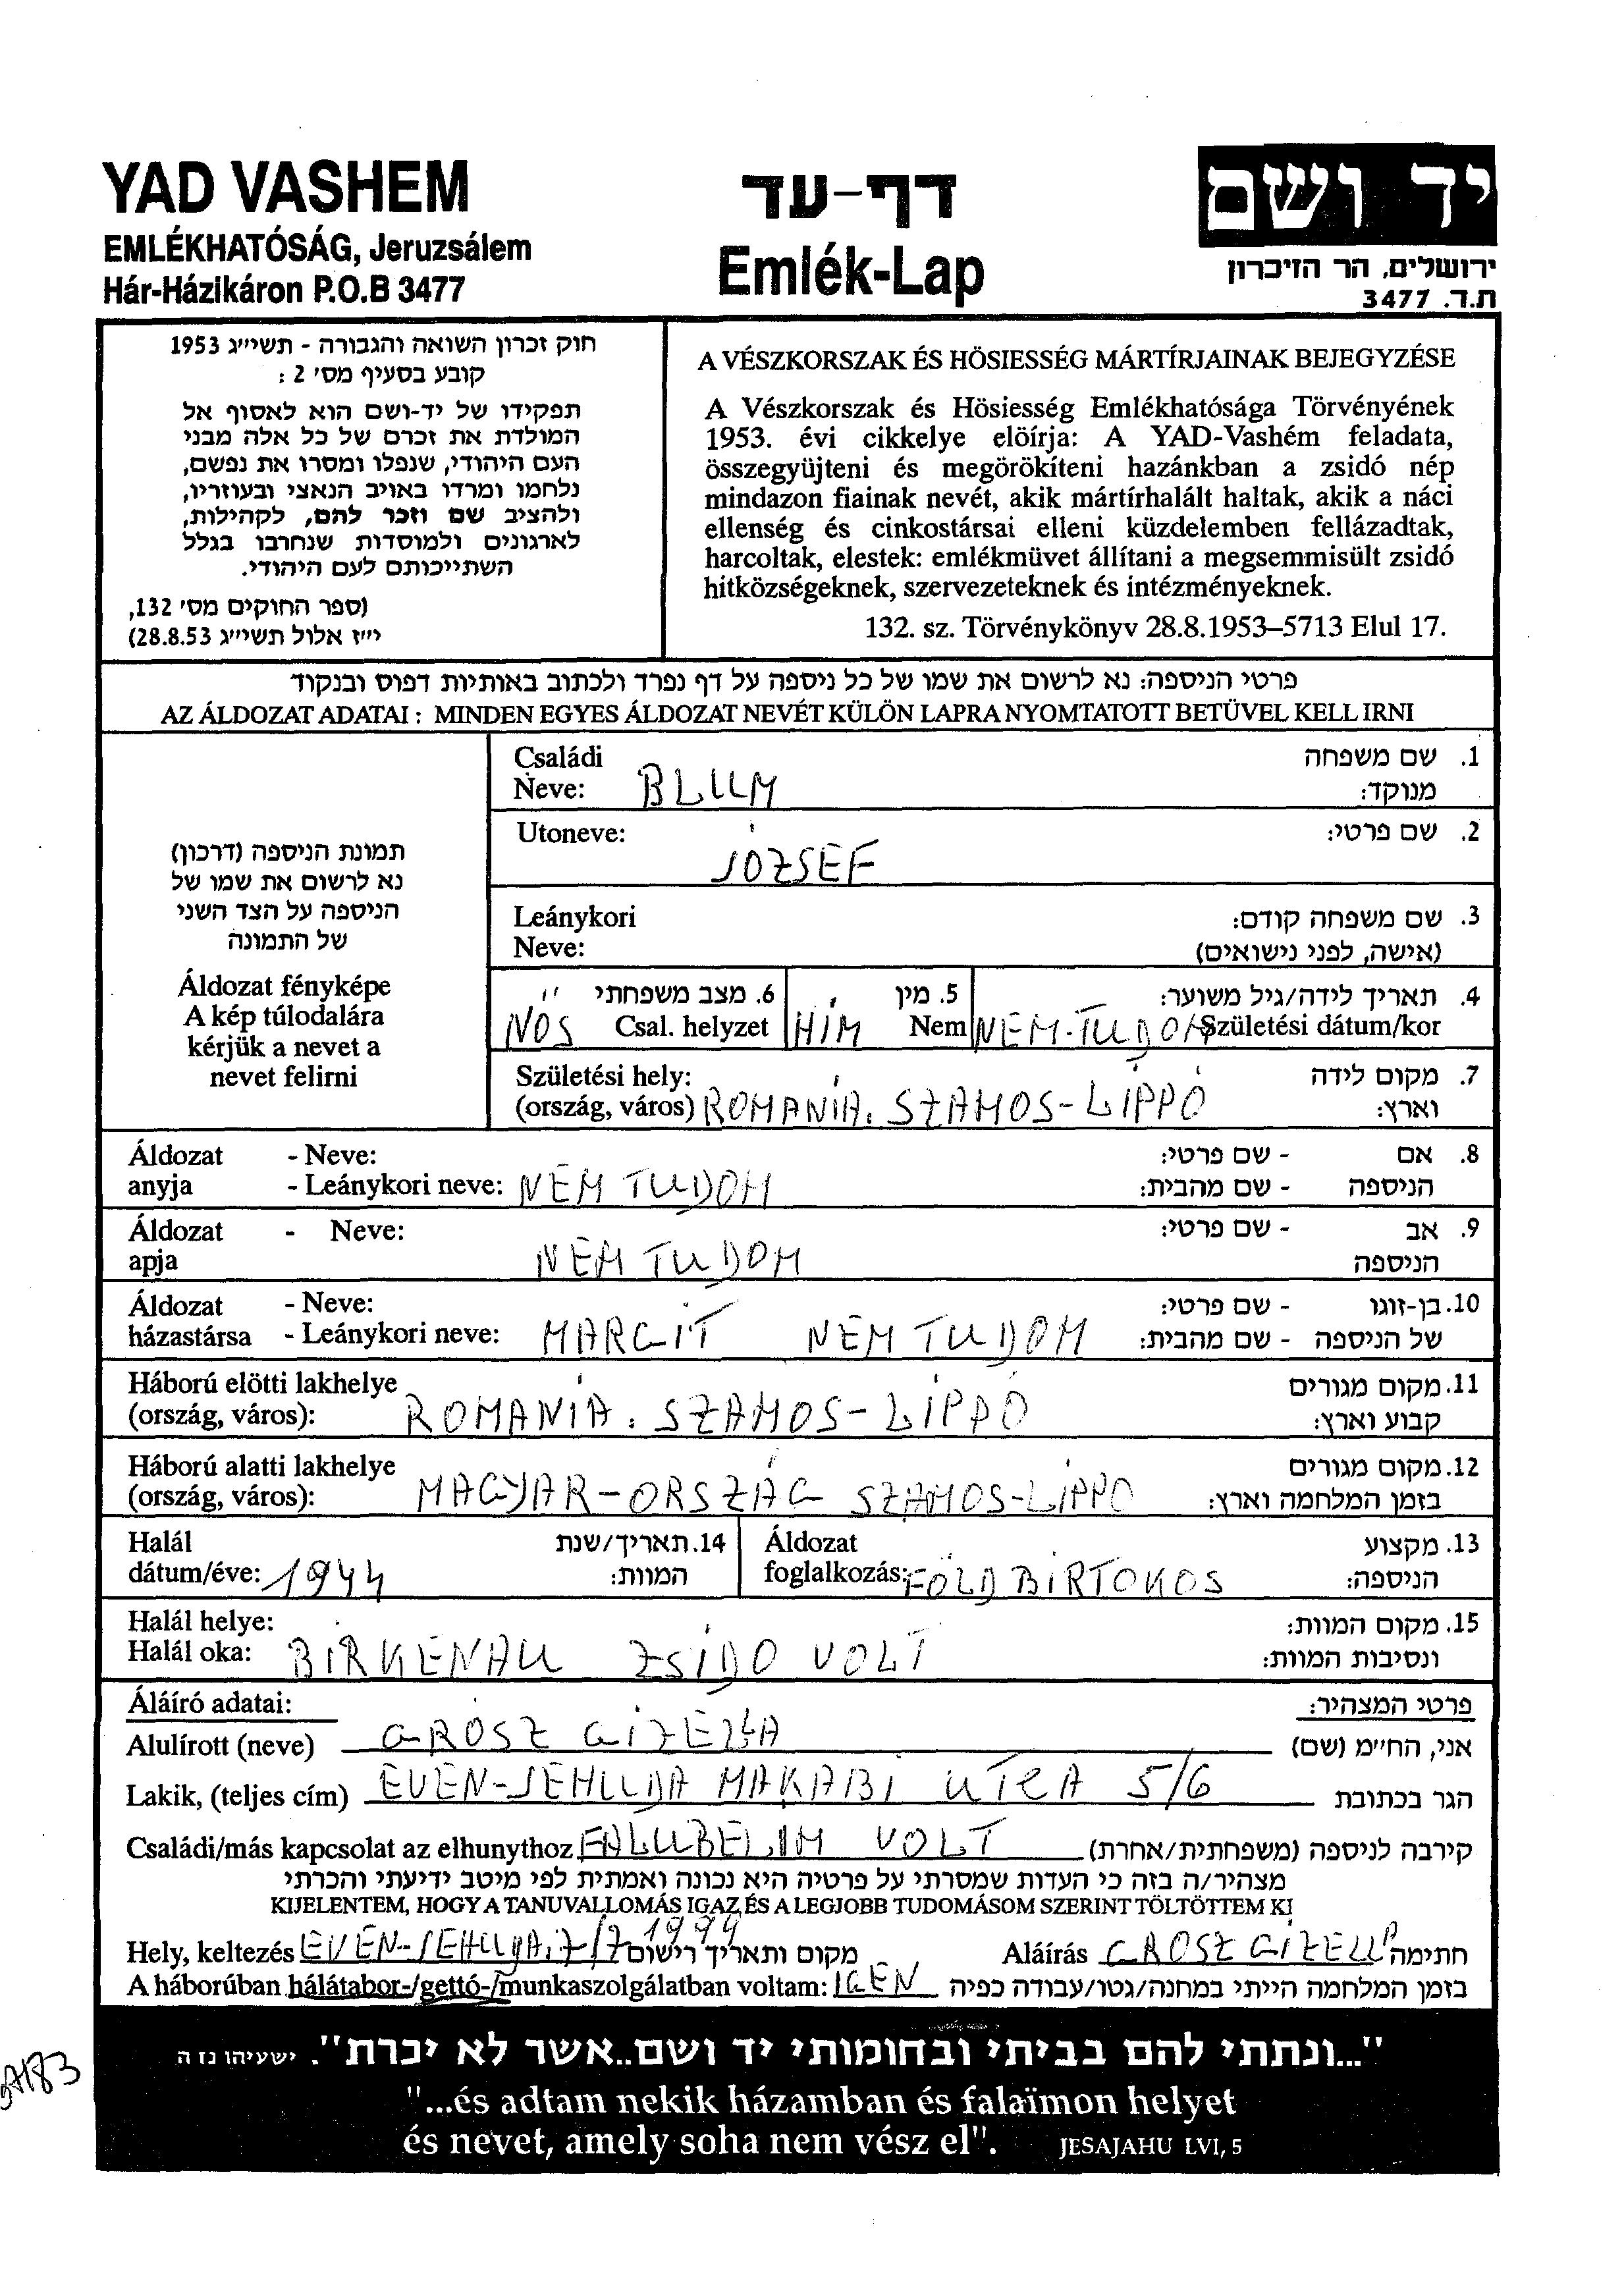 YAD VASHEM
EMLÉKHATÓSÁG, Jeruzsálem
Hár-Házikáron P.O.B 3477
דף-עד
Emlék-Lap
יד ושם
ירושלים, הר הזיכרון
ת.ד. 3477
חוק זכרון השואה והגבורה - תשי״ג 1953
קובע בסעיף מס׳ 2 :
תפקידו של יד-ושם הוא לאסוף אל
המולדת את זכרם של כל אלה מבני
העם היהודי, שנפלו ומסרו את נפשם,
נלחמו ומרדו באויב הנאצי ובעוזריו,
ולהציב שם וזכר להם, לקהילות,
לארגונים ולמוסדות שנחרבו בגלל
השתייכותם לעם היהודי.
(ספר החוקים מס׳ 132,
י״ז אלול תשי״ג 28.8.53)
A VÉSZKORSZAK ÉS HÖSIESSÉG MÁRTÍRJAINAK BEJEGYZÉSE
A Vészkorszak és Hösiesség Emlékhatósága Törvényének
1953. évi cikkelye elöírja: A YAD-Vashém feladata,
összegyüjteni és megörökíteni hazánkban a zsidó nép
mindazon fiainak nevét, akik mártírhalált haltak, akik a náci
ellenség és cinkostársai elleni küzdelemben fellázadtak,
harcoltak, elestek: emlékmüvet állítani a megsemmisült zsidó
hitközségeknek, szervezeteknek és intézményeknek.
132. sz. Törvénykönyv 28.8.1953–5713 Elul 17.
פרטי הניספה: נא לרשום את שמו של כל ניספה על דף נפרד ולכתוב באותיות דפוס ובנקוד
AZ ÁLDOZAT ADATAI : MINDEN EGYES ÁLDOZAT NEVÉT KÜLÖN LAPRA NYOMTATOTT BETÜVEL KELL IRNI
תמונת הניספה (דרכון)
נא לרשום את שמו של
הניספה על הצד השני
של התמונה
Áldozat fényképe
A kép túlodalára
kérjük a nevet a
nevet felirni
Családi 1. שם משפחה
Neve: BLUM מנוקד:
Utoneve: JÓZSEF 2. שם פרטי:
Leánykori 3. שם משפחה קודם:
Neve: (אישה, לפני נישואים)
6. מצב משפחתי 5. מין 4. תאריך לידה/גיל משוער:
NŐS Csal. helyzet HÍM Nem NEM-TUDOM Születési dátum/kor
Születési hely: 7. מקום לידה
(ország, város) ROMÁNIA. SZAMOS-LIPPÓ וארץ:
Áldozat - Neve: - שם פרטי: 8. אם
anyja - Leánykori neve: NEM TUDOM - שם מהבית: הניספה
Áldozat - Neve: - שם פרטי: 9. אב
apja NEM TUDOM הניספה
Áldozat - Neve: - שם פרטי: 10. בן-זוגו
házastársa - Leánykori neve: MARGIT NEM TUDOM - שם מהבית: של הניספה
Háború elötti lakhelye 11. מקום מגורים
(ország, város): ROMÁNIA. SZAMOS-LIPPÓ קבוע וארץ:
Háború alatti lakhelye 12. מקום מגורים
(ország, város): MAGYAR-ORSZÁG SZAMOS-LIPPÓ בזמן המלחמה וארץ:
Halál 14. תאריך/שנת Áldozat 13. מקצוע
dátum/éve: 1944 המוות: foglalkozás: FÖLDBIRTOKOS הניספה:
Halál helye: 15. מקום המוות:
Halál oka: BIRKENAU ZSIDÓ VOLT ונסיבות המוות:
Áláíró adatai: פרטי המצהיר:
Alulírott (neve) GRÓSZ GIZELLA אני, החיימ (שם)
Lakik, (teljes cím) EVEN-JEHUDA MAKABI UTCA 5/6 הגר בכתובת
Családi/más kapcsolat az elhunythoz FALUBELIM VOLT קירבה לניספה (משפחתית/אחרת)
מצהיר/ה בזה כי העדות שמסרתי על פרטיה היא נכונה ואמתית לפי מיטב ידיעתי והכרתי
KIJELENTEM, HOGY A TANUVALLOMÁS IGAZ, ÉS A LEGJOBB TUDOMÁSOM SZERINT TÖLTÖTTEM KI
Hely, keltezés EVEN-JEHUDA. 7/7 1994 מקום ותאריך רישום Aláírás GROSZ GIZELLA חתימה
A háborúban hálátabor-/gettó-/munkaszolgálatban voltam: IGEN בזמן המלחמה הייתי במחנה/גטו/עבודה כפיה
"...ונתתי להם בביתי ובחומותי יד ושם..אשר לא יכרת". ישעיהו נז ה
"...és adtam nekik házamban és falaïmon helyet
és nevet, amely soha nem vész el". JESAJAHU LVI, 5